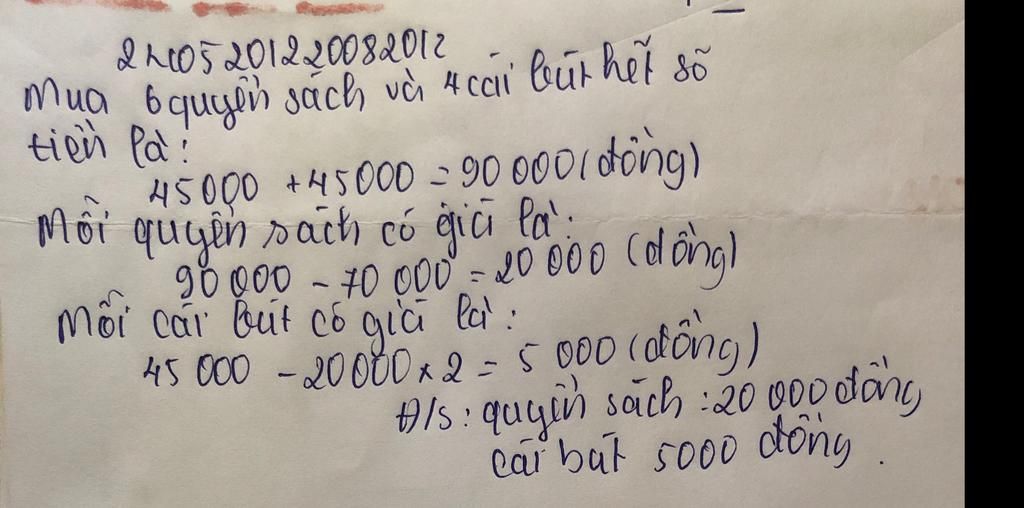 Mua 6 quyển sách và 4 cái bút hết số
tiền là:
45000 + 45000 = 90 000 (đồng)
Mỗi quyển sách có giá là:
90 000 - 70 000 = 20 000 (đồng)
Mỗi cái bút có giá là:
45 000 - 20000 x 2 = 5 000 (đồng)
Đ/s: quyển sách: 20 000 đồng
cái bút 5000 đồng.